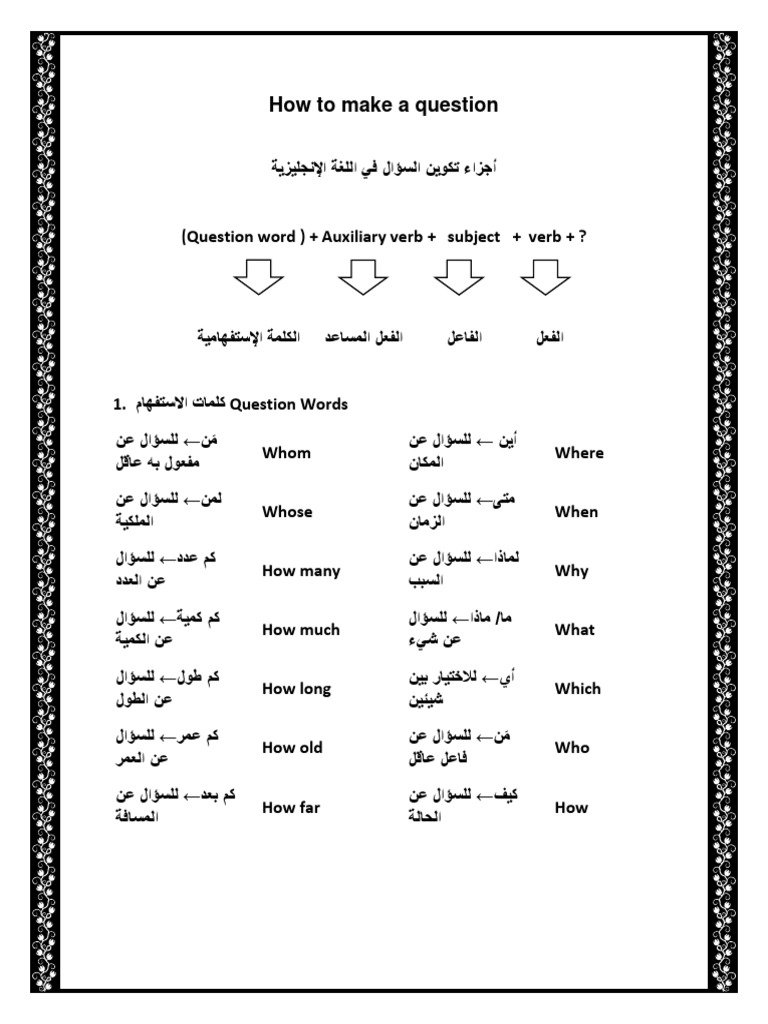 How to make a question
أجزاء تكوين السؤال في اللغة الإنجليزية
(Question word ) + Auxiliary verb + subject + verb + ?
الكلمة الإستفهامية الفعل المساعد الفاعل الفعل
1. كلمات الاستفهام Question Words
مَن← للسؤال عن
مفعول به عاقل
Whom
أين ← للسؤال عن
المكان
Where
لمن← للسؤال عن
الملكية
Whose
متى← للسؤال عن
الزمان
When
كم عدد← للسؤال
عن العدد
How many
لماذا← للسؤال عن
السبب
Why
كم كمية← للسؤال
عن الكمية
How much
ما/ ماذا← للسؤال
عن شيء
What
كم طول← للسؤال
عن الطول
How long
أي← للاختيار بين
شيئين
Which
كم عمر← للسؤال
عن العمر
How old
مَن← للسؤال عن
فاعل عاقل
Who
كم بعد← للسؤال عن
المسافة
How far
كيف← للسؤال عن
الحالة
How